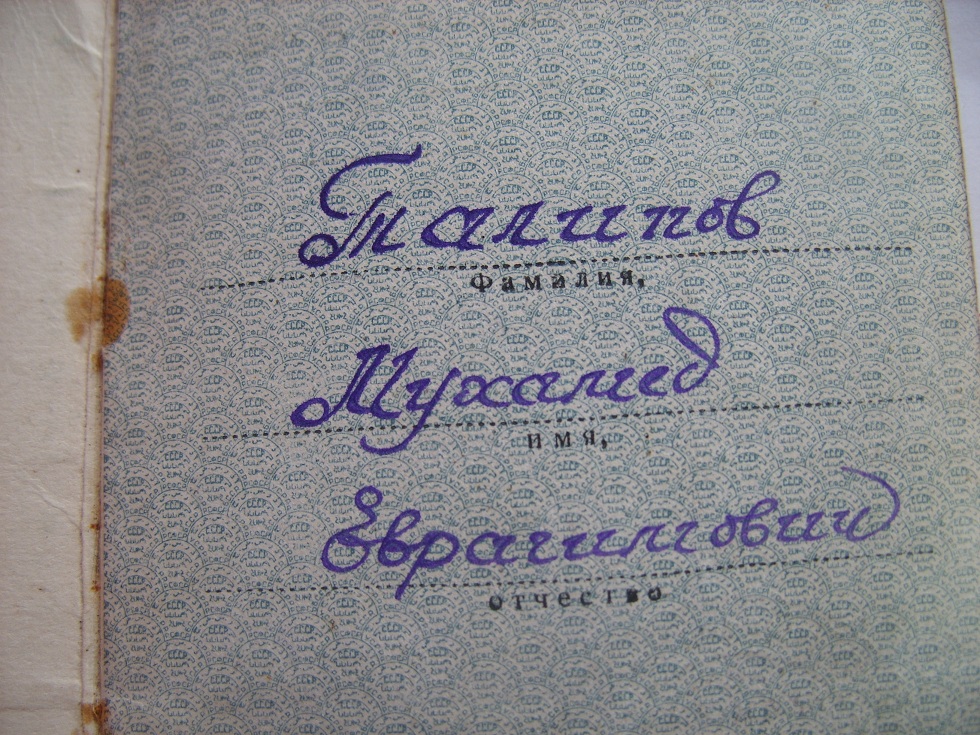 Талипов
Фамилия,
Мухамед
имя,
Еврагимович
отчество